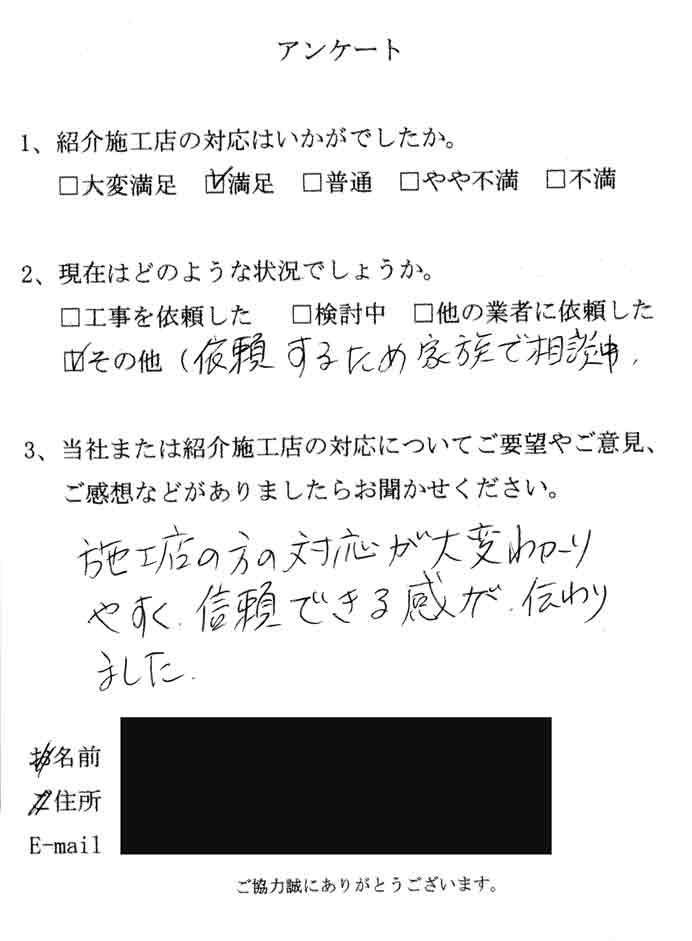 アンケート
1、紹介施工店の対応はいかがでしたか。
□大変満足 ☑満足 □普通 □やや不満 □不満
2、現在はどのような状況でしょうか。
□工事を依頼した □検討中 □他の業者に依頼した
☑その他（依頼するため家族で相談中）
3、当社または紹介施工店の対応についてご要望やご意見、
ご感想などがありましたらお聞かせください。
施工店の方の対応が大変わかり
やすく、信頼できる感が、伝わり
ました。
お名前
ご住所
E-mail
ご協力誠にありがとうございます。